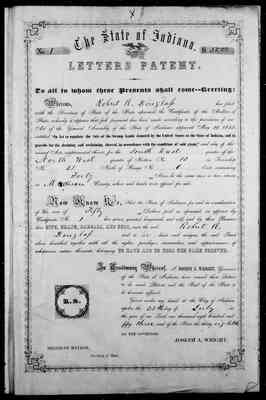 The State of Indiana.
No. 1
LETTERS PATENT.
To all to whom these Presents shall come--Greeting:
Whereas, Robert R. Douglass has filed
with the Auditor of State of the State aforesaid the Certificate of the Auditor of
State, whereby it appears that full payment has been made according to the provisions of an
Act of the General Assembly of the State of Indiana approved May 29, 1852,
entitled "An Act to regulate the sale of the Swamp Lands donated by the United States to the State of Indiana, and to
provide for the draining and reclaiming thereof, in accordance with the condition of said grant," and also of the
several Acts supplemental thereto for the South East of the
North West quarter of Section No. 10 in Township
No. 21 North of Range No. 6 East containing
Forty Acres be the same more or less situate
in Madison County, where said lands were offered for sale.
Now Know Ye, That the State of Indiana for and in consideration
of the sum of Fifty Dollars paid as specified as appears by
Certificate No. 1 has given, granted, bargained and sold, and by these Presents
does GIVE, GRANT, BARGAIN, AND SELL, unto the said Robert R.
Douglass and to his heirs and assigns the said Tract
above described together with all the rights, privileges, immunities, and appurtenances of
whatsoever nature thereunto belonging TO HAVE AND TO HOLD THE SAME FOREVER.
In Testimony Whereof, I, JOSEPH A. WRIGHT, Governor
of the State of Indiana, have caused these Letters
to be made Patent, and the Seal of the State to
be hereunto affixed.
Given under my hand at the City of Indianapolis
the day of July in
the year of our Lord one thousand eight hundred and
fifty three, and of the State the thirty eighth
BY THE GOVERNOR.
JOSEPH A. WRIGHT.
Secretary of State.